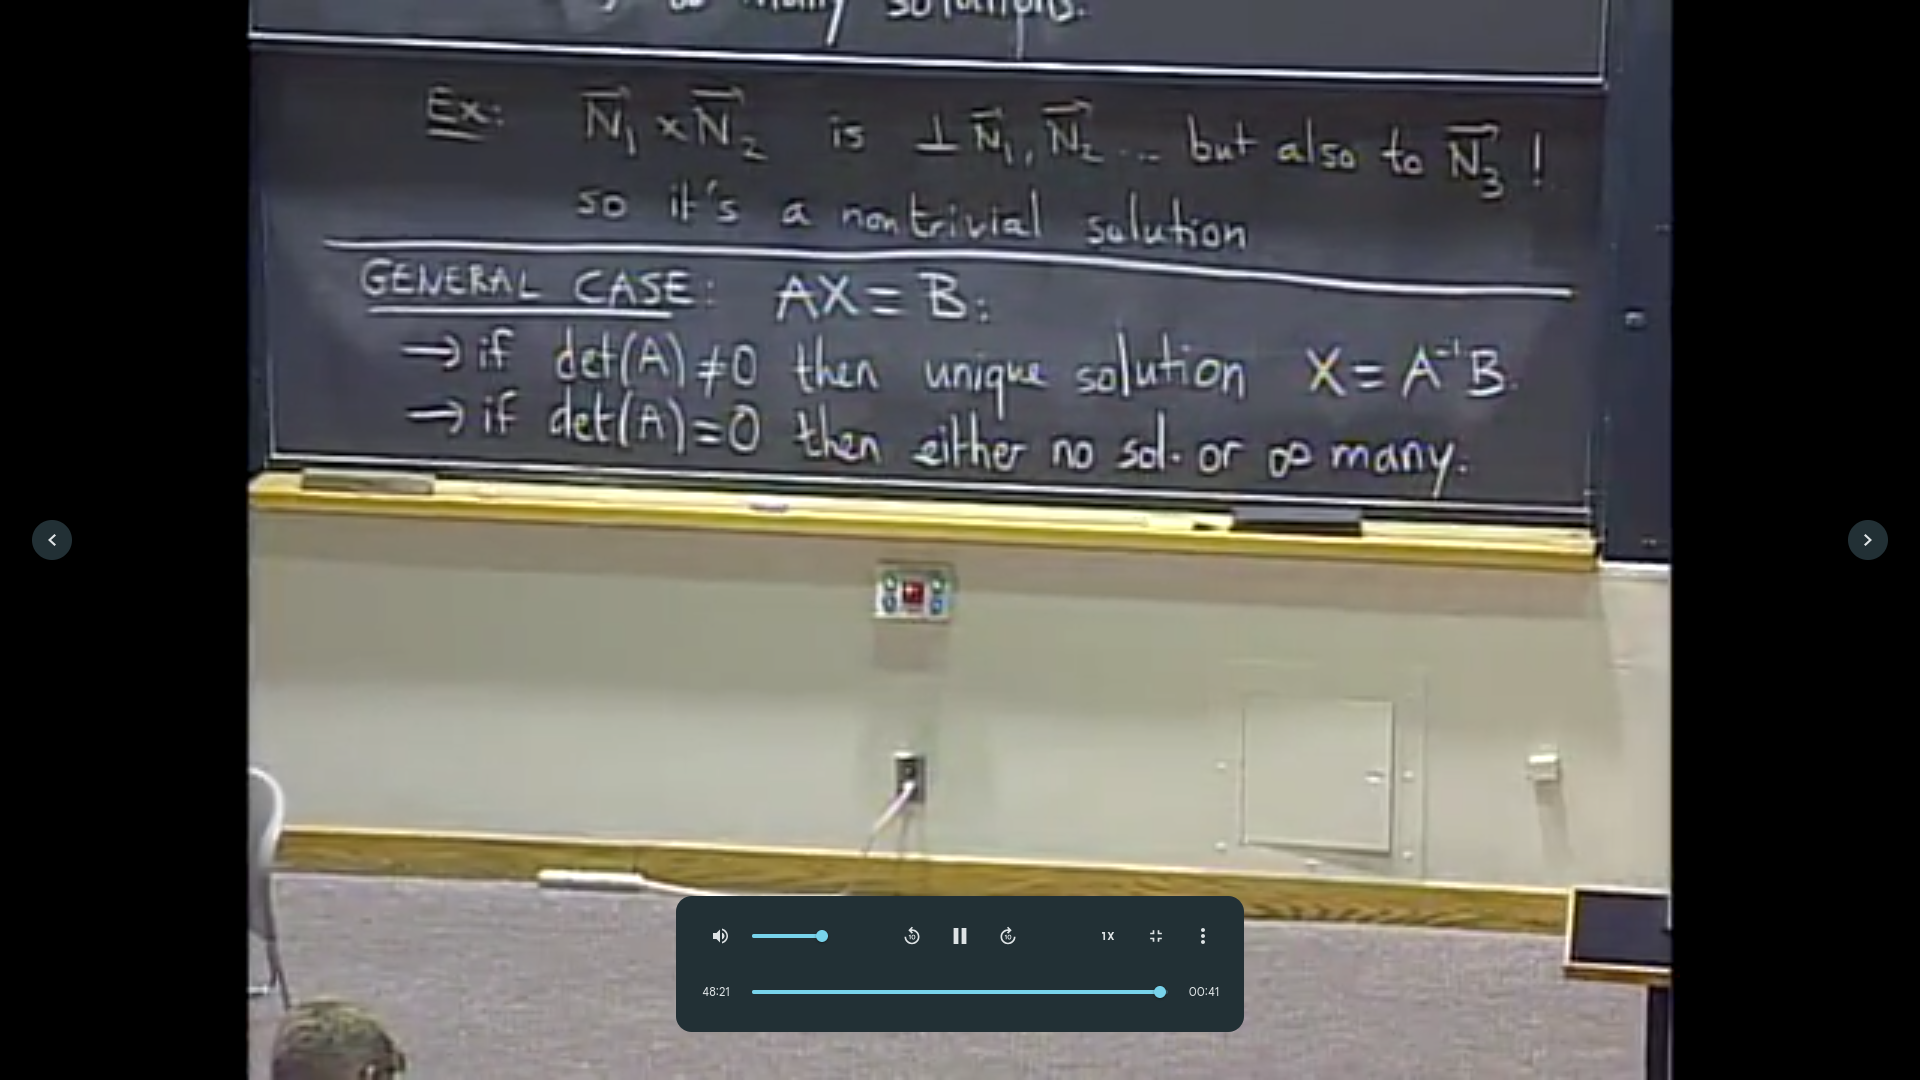 many solutions.
Ex: N⃗₁ × N⃗₂ is ⊥ N⃗₁, N⃗₂ ... but also to N⃗₃ !
so it's a nontrivial solution
GENERAL CASE: AX = B:
→ if det(A) ≠ 0 then unique solution X = A⁻¹B.
→ if det(A) = 0 then either no sol. or ∞ many.
10
10
1X
48:21
00:41